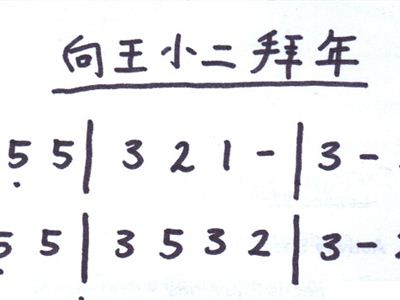 向王小二拜年
5 5 | 3 2 1 - | 3 -
5 5 | 3 5 3 2 | 3 -